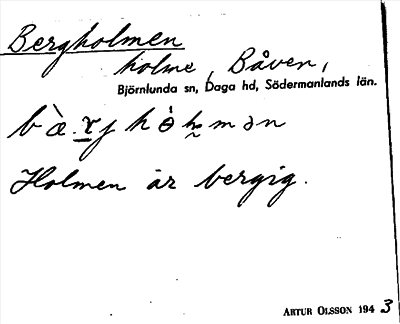 Bergholmen
holme, Båven,
Björnlunda sn, Daga hd, Södermanlands län.
Holmen är bergig.
ARTUR OLSSON 1943